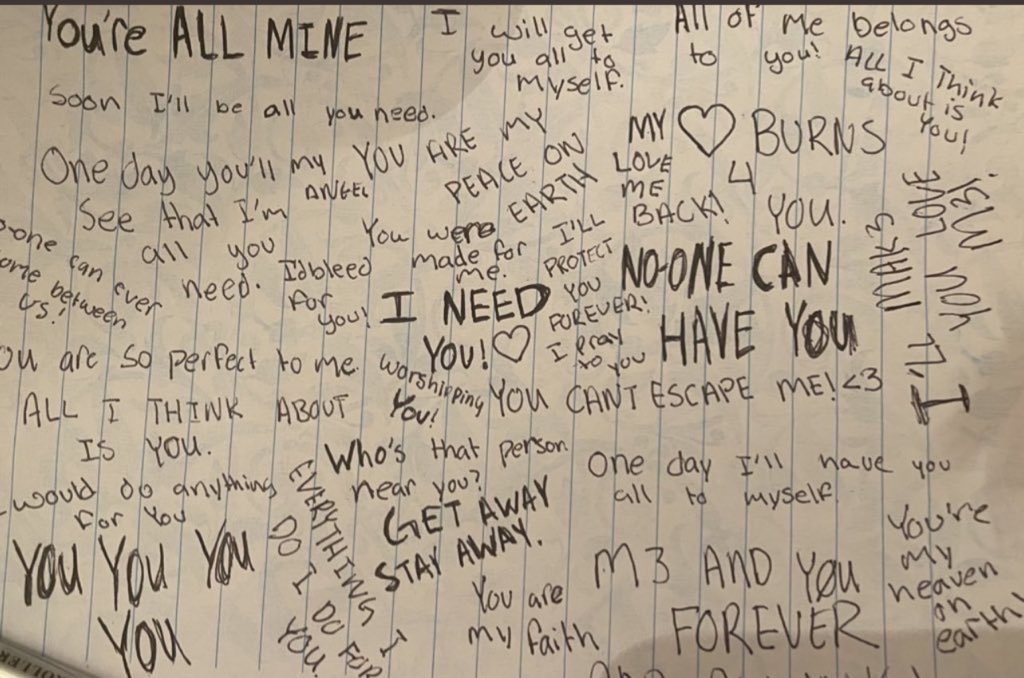 You're ALL MINE
I will get
you all to
myself.
All of Me belongs
to you!
ALL I Think
about is
You!
Soon I'll be all you need.
One day you'll my
ANGEL
See that I'm
all you
need.
YOU ARE MY
PEACE ON
EARTH
MY ♡ BURNS
4
YOU.
LOVE
ME
BACK!
I'LL MAK3
YOU LOVE
M3!
can ever
between
us!
I'd bleed
for
you!
You were
made for
me.
I'LL
PROTECT
YOU
FOREVER!
I pray
to you
I NEED
YOU! ♡
NO-ONE CAN
HAVE YOU
are so perfect to me.
worshipping
You!
YOU CANT ESCAPE ME! <3
ALL I THINK ABOUT
IS YOU.
Who's that person
near you?
GET AWAY
STAY AWAY.
One day I'll have you
all to myself.
would do anything
for You
YOU YOU YOU
YOU
EVERYTHING I
DO I DO FOR
YOU.
You are
my faith
M3 AND YOU
FOREVER
You're
my
heaven
on
earth!